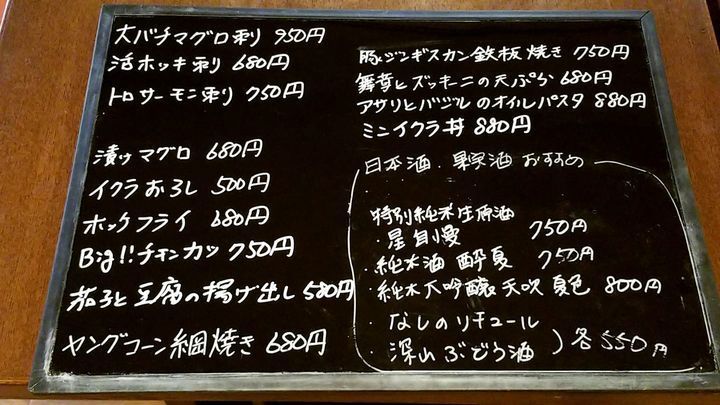 大バチマグロ刺り 950円
活ホッキ刺り 680円
トロサーモン刺り 750円
漬けマグロ 680円
イクラおろし 500円
ホッケフライ 680円
Big!!チキンカツ 750円
茄子と豆腐の揚げ出し 580円
ヤングコーン網焼き 680円
豚ジンギスカン鉄板焼き 750円
舞茸とズッキーニの天ぷら 680円
アサリとバジルのオイルパスタ 880円
ミニイクラ丼 880円
日本酒・果実酒 おすすめ
特別純米生原酒
・星自慢 750円
・純米酒 酔夏 750円
・純米大吟醸 天吹 夏色 800円
・なしのリキュール
・深山ぶどう酒 ) 各550円